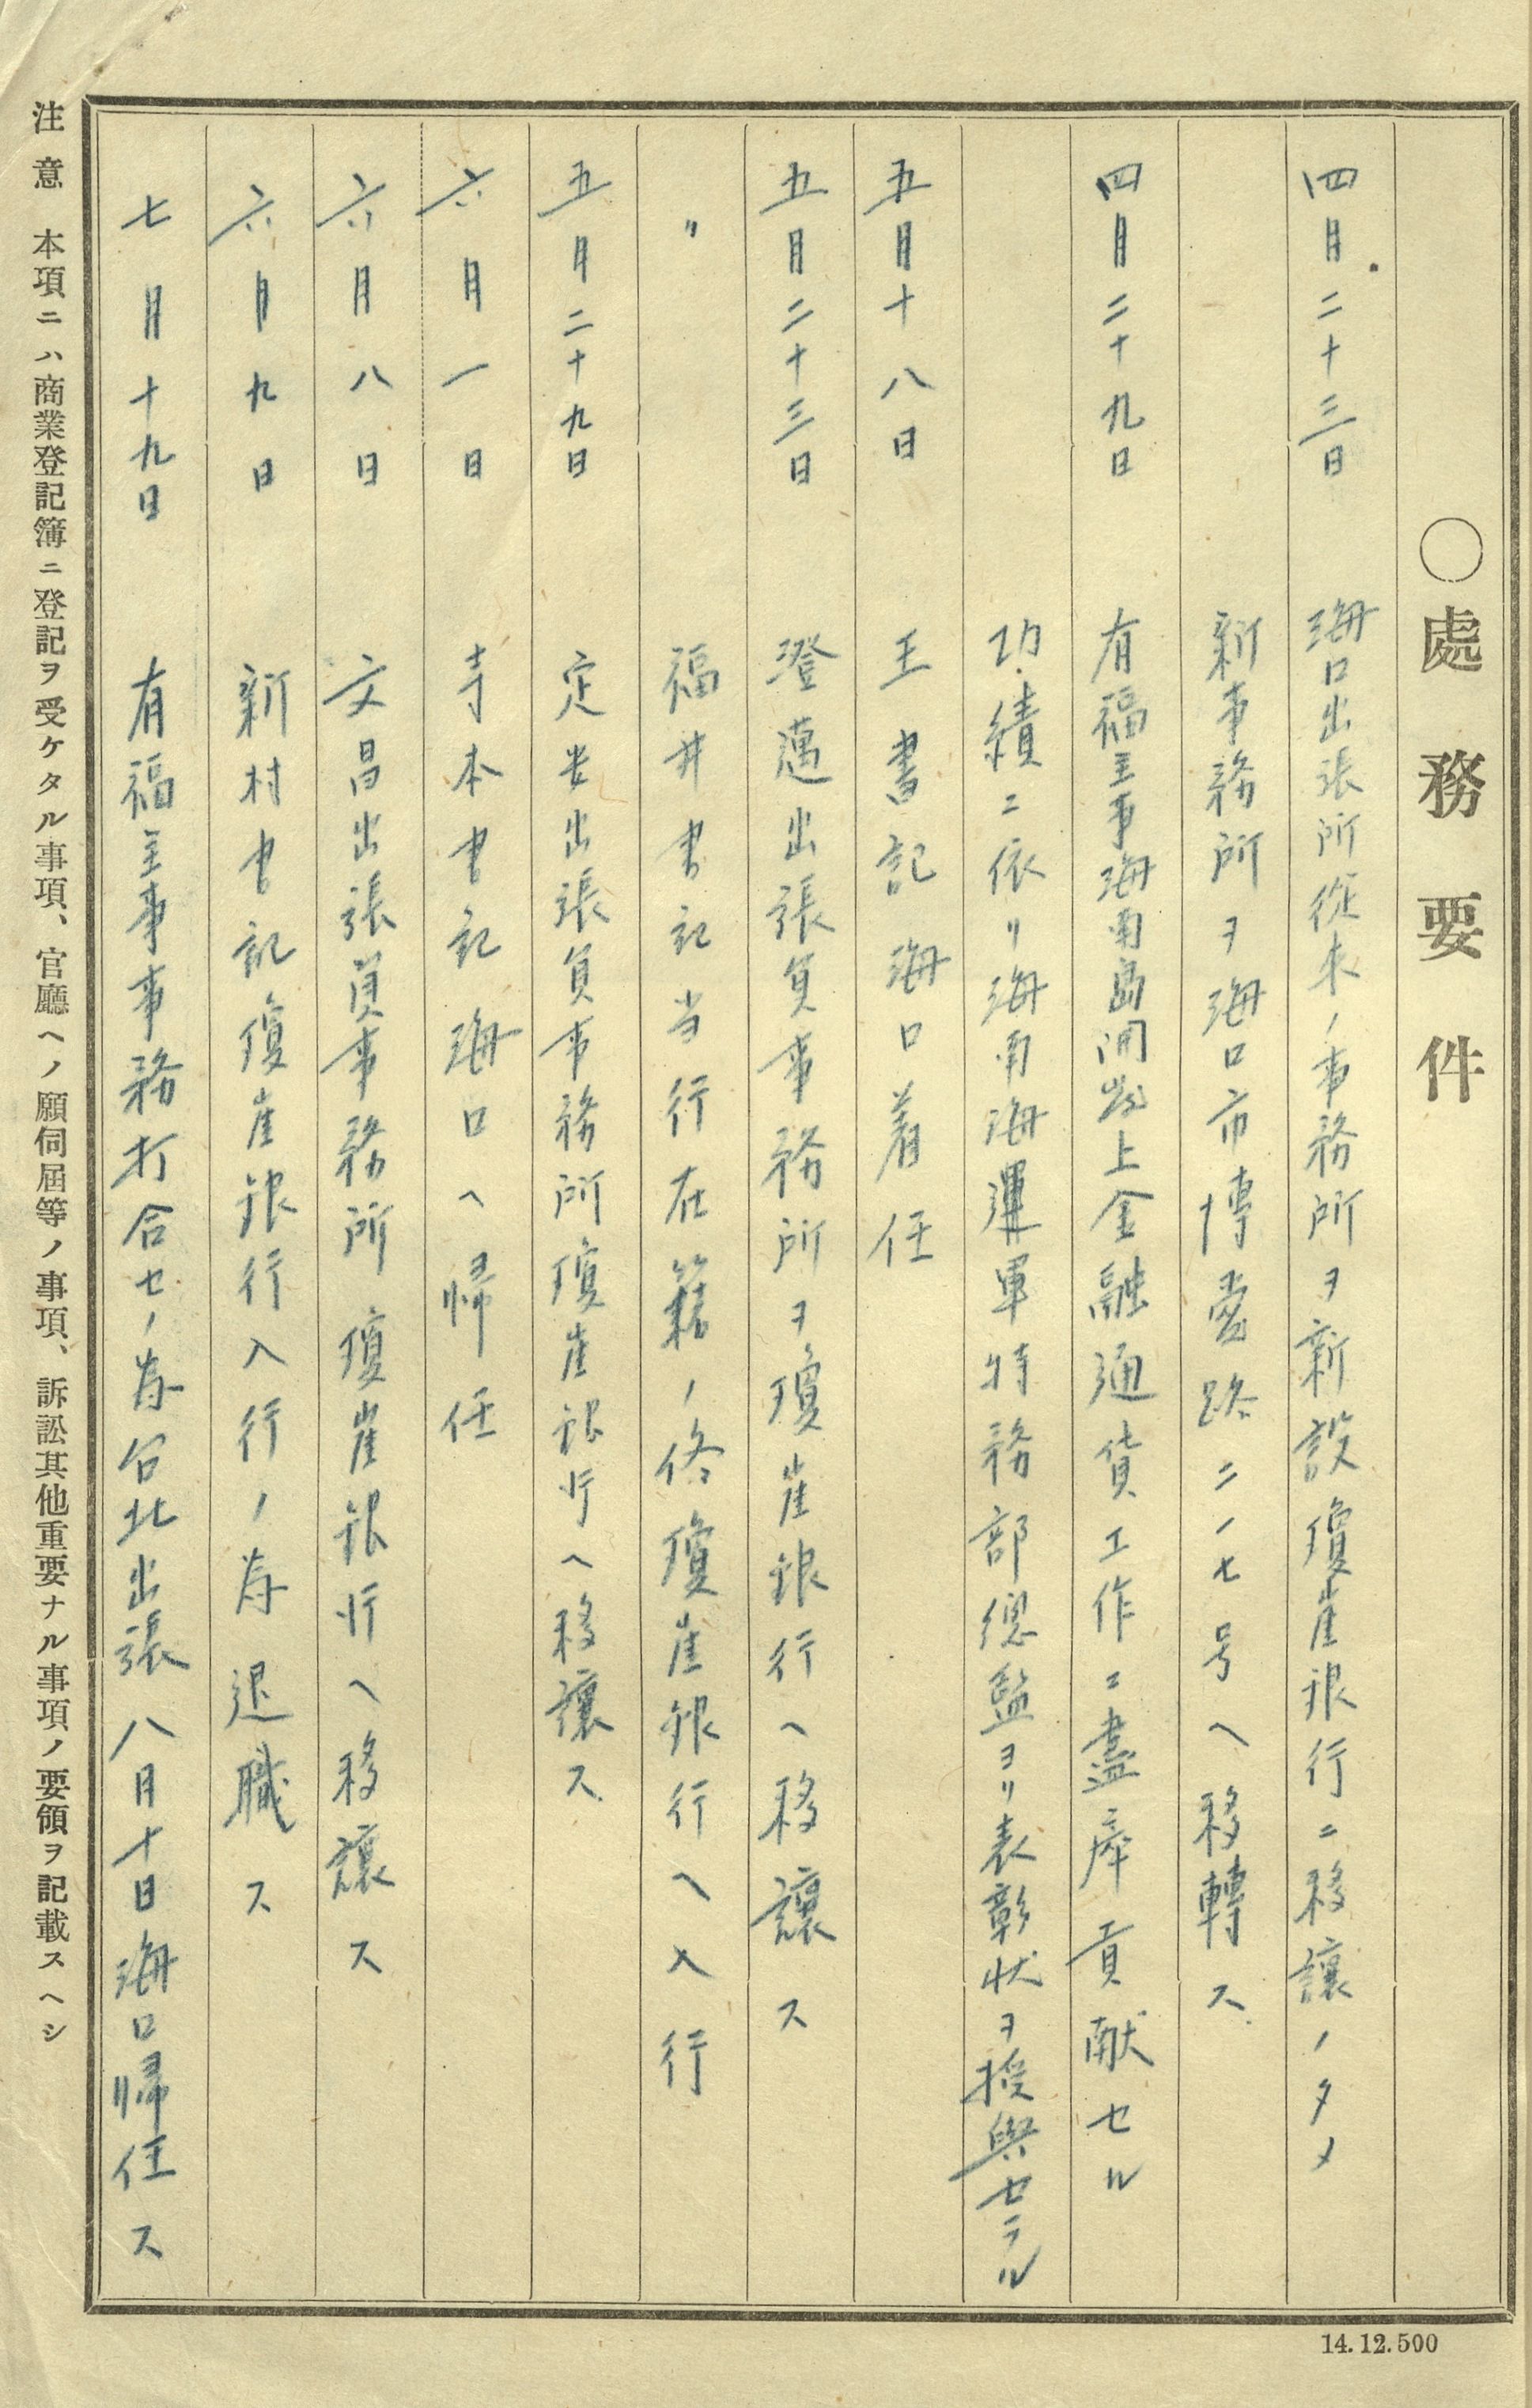 〇處務要件
四月二十三日 海口出張所從来ノ事務所ヲ新設瓊崖銀行ニ移讓ノタメ
新事務所ヲ海口市博愛路二ノ七号ヘ移轉ス
四月二十九日 有福主事海南島開発上金融通貨工作ニ盡瘁貢献セル
功績ニ依リ海南海軍特務部總監ヨリ表彰状ヲ授與セラル
五月十八日 王書記海口着任
五月二十三日 澄邁出張員事務所ヲ瓊崖銀行ヘ移讓ス
〃 福井書記当行在籍ノ侭瓊崖銀行ヘ入行
五月二十九日 定安出張員事務所瓊崖銀行ヘ移讓ス
六月一日 寺本書記海口ヘ帰任
六月八日 文昌出張員事務所瓊崖銀行ヘ移讓ス
六月九日 新村書記瓊崖銀行入行ノ為退職ス
七月十九日 有福主事事務打合セノ為台北出張八月十日海口帰任ス
注意 本項ニハ商業登記簿ニ登記ヲ受ケタル事項、官廳ヘノ願伺屆等ノ事項、訴訟其他重要ナル事項ノ要領ヲ記載スヘシ
14.12.500